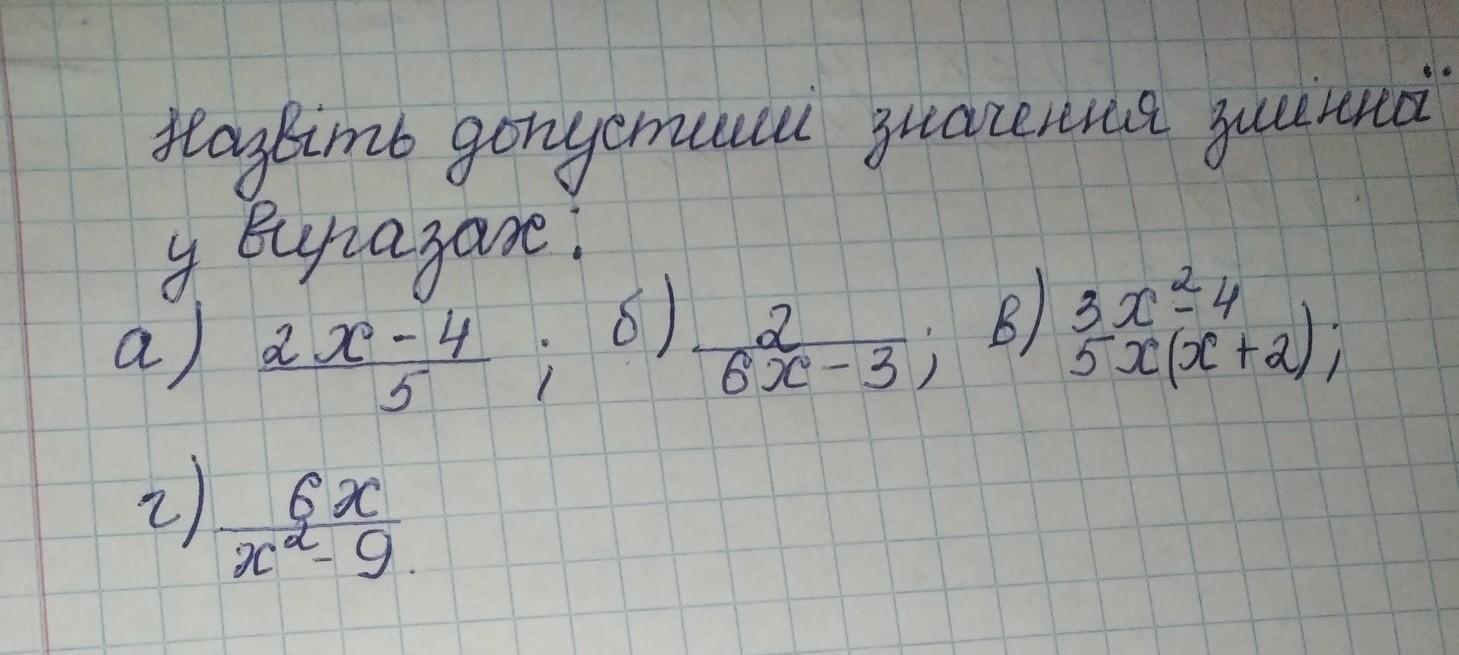 Назвіть допустимі значення змінної
у виразах:
а) (2x - 4)/5 ; б) 2/(6x - 3) ; в) 3x² - 4 / 5x(x + 2) ;
г) 6x/(x² - 9).